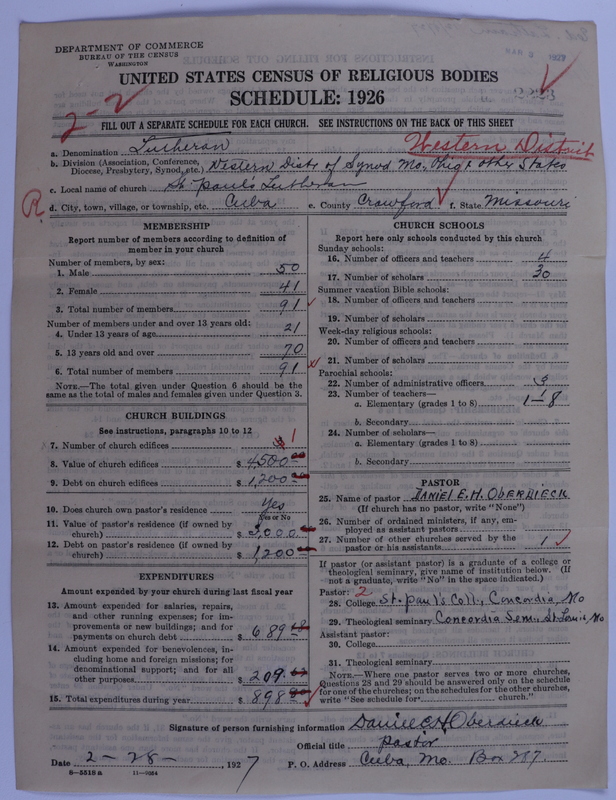 DEPARTMENT OF COMMERCE
BUREAU OF THE CENSUS
WASHINGTON
1927
UNITED STATES CENSUS OF RELIGIOUS BODIES
SCHEDULE: 1926
2-2
FILL OUT A SEPARATE SCHEDULE FOR EACH CHURCH. SEE INSTRUCTIONS ON THE BACK OF THIS SHEET
Western District
a. Denomination Lutheran
b. Division (Association, Conference, Diocese, Presbytery, Synod, etc.) Western Dist. of Synod Mo., Ohio & Other States
c. Local name of church St. Paul's Lutheran
R d. City, town, village, or township, etc. Cuba e. County Crawford f. State Missouri
MEMBERSHIP
Report number of members according to definition of
member in your church
Number of members, by sex:
1. Male 50
2. Female 41
3. Total number of members 91
Number of members under and over 13 years old:
4. Under 13 years of age 21
5. 13 years old and over 70
6. Total number of members 91
NOTE.—The total given under Question 6 should be the
same as the total of males and females given under Question 3.
CHURCH BUILDINGS
See instructions, paragraphs 10 to 12
7. Number of church edifices 1
8. Value of church edifices $ 4500
9. Debt on church edifices $ 1,200
10. Does church own pastor's residence Yes
Yes or No
11. Value of pastor's residence (if owned by
church) $ 3,000
12. Debt on pastor's residence (if owned by
church) $ 1200
EXPENDITURES
Amount expended by your church during last fiscal year
13. Amount expended for salaries, repairs,
and other running expenses; for im-
provements or new buildings; and for
payments on church debt $ 689
14. Amount expended for benevolences, in-
cluding home and foreign missions; for
denominational support; and for all
other purposes $ 209.
15. Total expenditures during year $ 898
CHURCH SCHOOLS
Report here only schools conducted by this church
Sunday schools:
16. Number of officers and teachers 4
17. Number of scholars 30
Summer vacation Bible schools:
18. Number of officers and teachers
19. Number of scholars
Week-day religious schools:
20. Number of officers and teachers
21. Number of scholars
Parochial schools:
22. Number of administrative officers 3
23. Number of teachers—
a. Elementary (grades 1 to 8) 1-8
b. Secondary
24. Number of scholars—
a. Elementary (grades 1 to 8)
b. Secondary
PASTOR
25. Name of pastor DANIEL E. H. OBERDIECK
(If church has no pastor, write "None")
26. Number of ordained ministers, if any, em-
ployed as assistant pastors
27. Number of other churches served by the
pastor or his assistants 1
If pastor (or assistant pastor) is a graduate of a college or
theological seminary, give name of institution below. (If
not a graduate, write "No" in the space indicated.)
Pastor: 2
28. College St. Paul's Coll., Concordia, Mo
29. Theological seminary Concordia Sem., St. Louis, Mo
Assistant pastor:
30. College
31. Theological seminary
NOTE.—Where one pastor serves two or more churches,
Questions 28 and 29 should be answered only on the schedule
for one of the churches; on the schedules for the other churches,
write "See schedule for church."
Signature of person furnishing information Daniel E. H. Oberdieck
Official title Pastor
Date 2-28-, 1927 P. O. Address Cuba, Mo. Box 287.
8-5518 a 11-9064